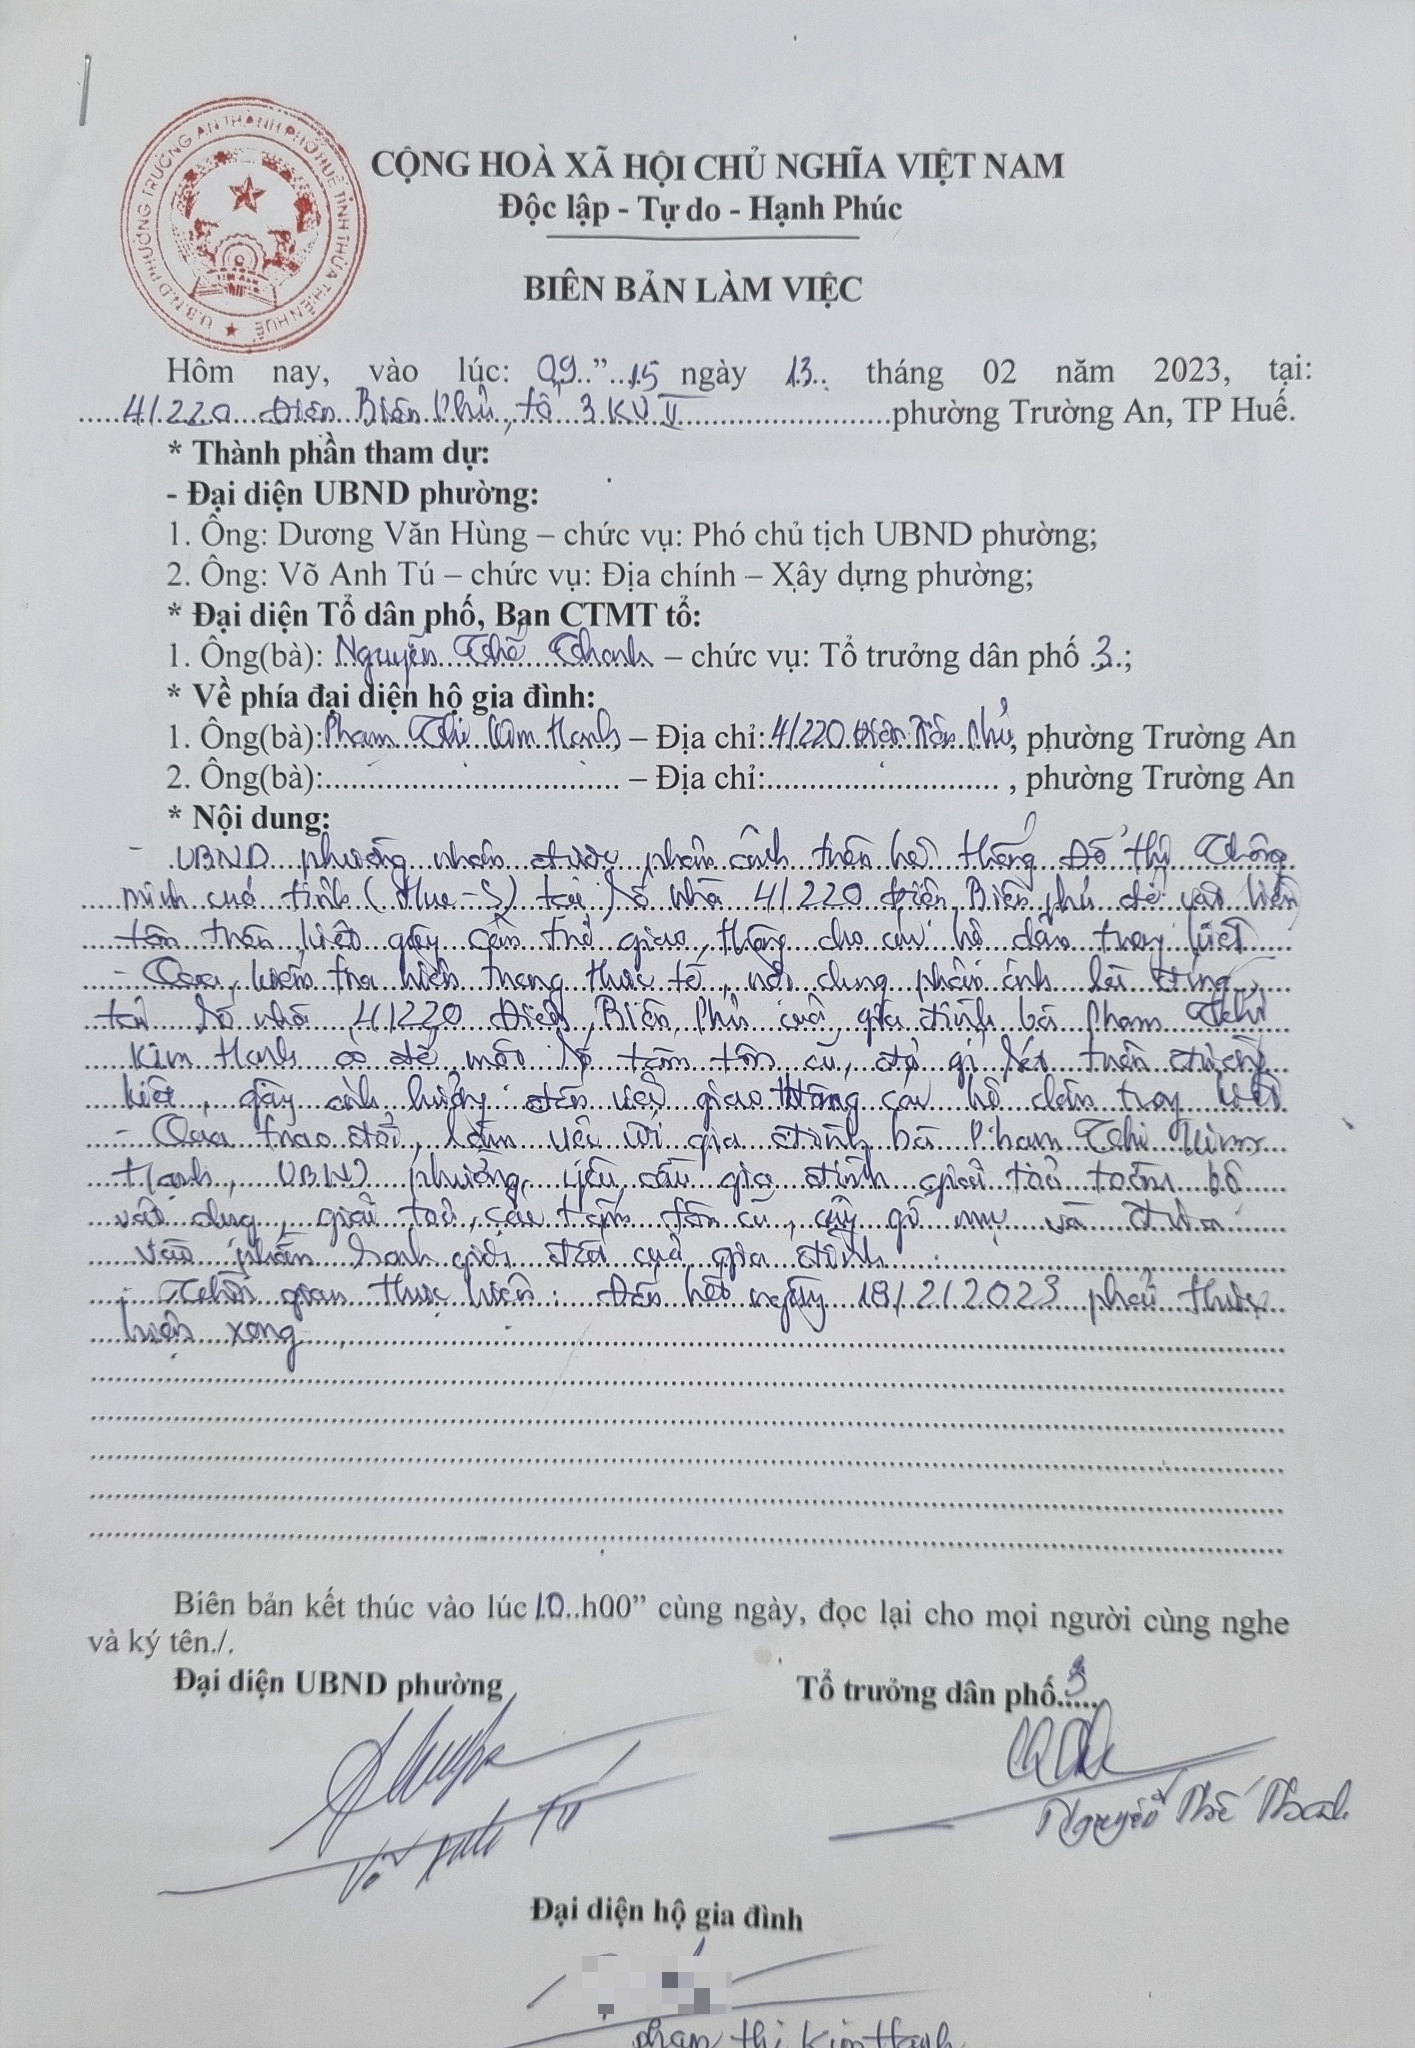 U.B.N.D PHƯỜNG TRƯỜNG AN THÀNH PHỐ HUẾ TỈNH THỪA THIÊN HUẾ
CỘNG HOÀ XÃ HỘI CHỦ NGHĨA VIỆT NAM
Độc lập - Tự do - Hạnh Phúc
BIÊN BẢN LÀM VIỆC
Hôm nay, vào lúc: 09..”...15 ngày 13.. tháng 02 năm 2023, tại:
4/220 Điện Biên Phủ, tổ 3 KV II phường Trường An, TP Huế.
* Thành phần tham dự:
- Đại diện UBND phường:
1. Ông: Dương Văn Hùng – chức vụ: Phó chủ tịch UBND phường;
2. Ông: Võ Anh Tú – chức vụ: Địa chính – Xây dựng phường;
* Đại diện Tổ dân phố, Ban CTMT tổ:
1. Ông(bà): Nguyễn Thế Thanh – chức vụ: Tổ trưởng dân phố 3;
* Về phía đại diện hộ gia đình:
1. Ông(bà): Phạm Thị Kim Hạnh – Địa chỉ: 4/220 Điện Biên Phủ, phường Trường An
2. Ông(bà):.................................... – Địa chỉ:............................ , phường Trường An
* Nội dung:
- UBND phường nhận được phản ánh trên hệ thống Đô thị Thông
minh của tỉnh (Hue-S) tại số nhà 4/220 Điện Biên Phủ để vật liệu
tôn trên kiệt gây cản trở giao thông cho các hộ dân trong kiệt
- Qua kiểm tra hiện trạng thực tế, nội dung phản ánh là đúng,
tại số nhà 4/220 Điện Biên Phủ của gia đình bà Phạm Thị
Kim Hạnh có để một số tấm tôn cũ, đã gỉ sét trên đường
kiệt, gây ảnh hưởng đến việc giao thông các hộ dân trong kiệt
- Qua trao đổi, làm việc với gia đình bà Phạm Thị Kim
Hạnh, UBND phường yêu cầu gia đình giải toả toàn bộ
vật dụng, giải toả các tấm tôn cũ, cây gỗ mục và đưa
vào phần ranh giới đất của gia đình.
- Thời gian thực hiện: Đến hết ngày 18/2/2023 phải thực
hiện xong
Biên bản kết thúc vào lúc 10..h00” cùng ngày, đọc lại cho mọi người cùng nghe
và ký tên./.
Đại diện UBND phường Tổ trưởng dân phố 3
Võ Anh Tú Nguyễn Thế Thanh
Đại diện hộ gia đình
Phạm Thị Kim Hạnh